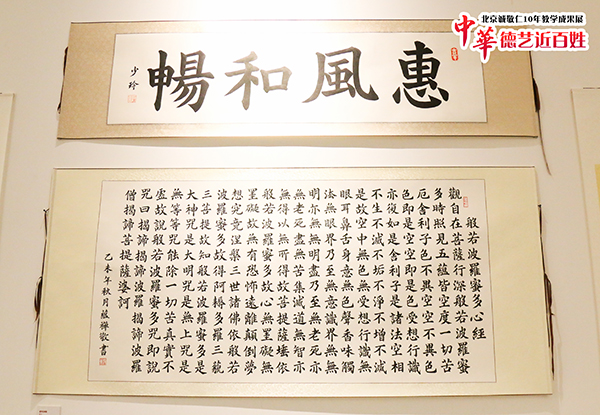 北京诚敬仁10年教学成果展
中華德艺近百姓
惠風和暢
少玲
般若波羅蜜多心經
觀自在菩薩行深般若波羅蜜
多時照見五蘊皆空度一切苦
厄舍利子色不異空空不異色
色即是空空即是色受想行識
亦復如是舍利子是諸法空相
不生不滅不垢不淨不增不減
是故空中無色無受想行識無
眼耳鼻舌身意無色聲香味觸
法無眼界乃至無意識界無無
明亦無無明盡乃至無老死亦
無老死盡無苦集滅道無智亦
無得以無所得故菩提薩埵依
般若波羅蜜多故心無罣礙無
罣礙故無有恐怖遠離顛倒夢
想究竟涅槃三世諸佛依般若
波羅蜜多故得阿耨多羅三藐
三菩提故知般若波羅蜜多是
大神咒是大明咒是無上咒是
無等等咒能除一切苦真實不
虛故說般若波羅蜜多咒即說
咒曰揭諦揭諦波羅揭諦波羅
僧揭諦菩提薩婆訶
乙未年秋月禪敬書